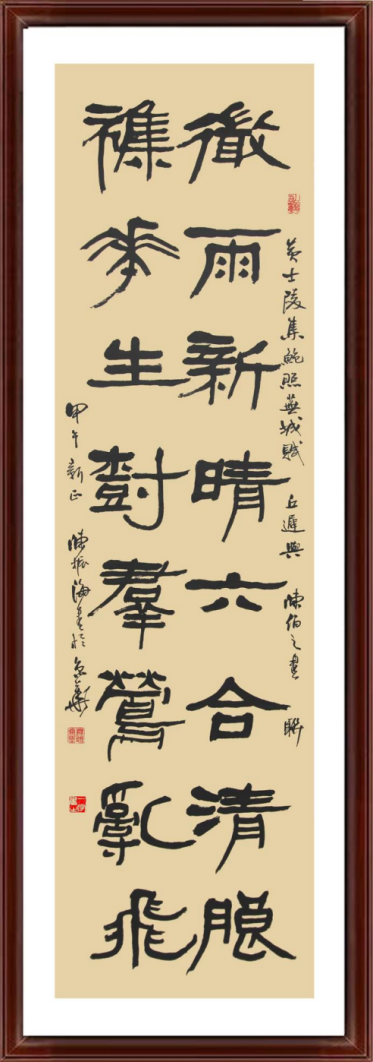 黃士陵集鮑照蕪城賦 丘遲與 陳伯之書 聯
微雨新晴六合清朖
襍華生尌羣鶯亂飛
甲午新正 陳振海書於京華